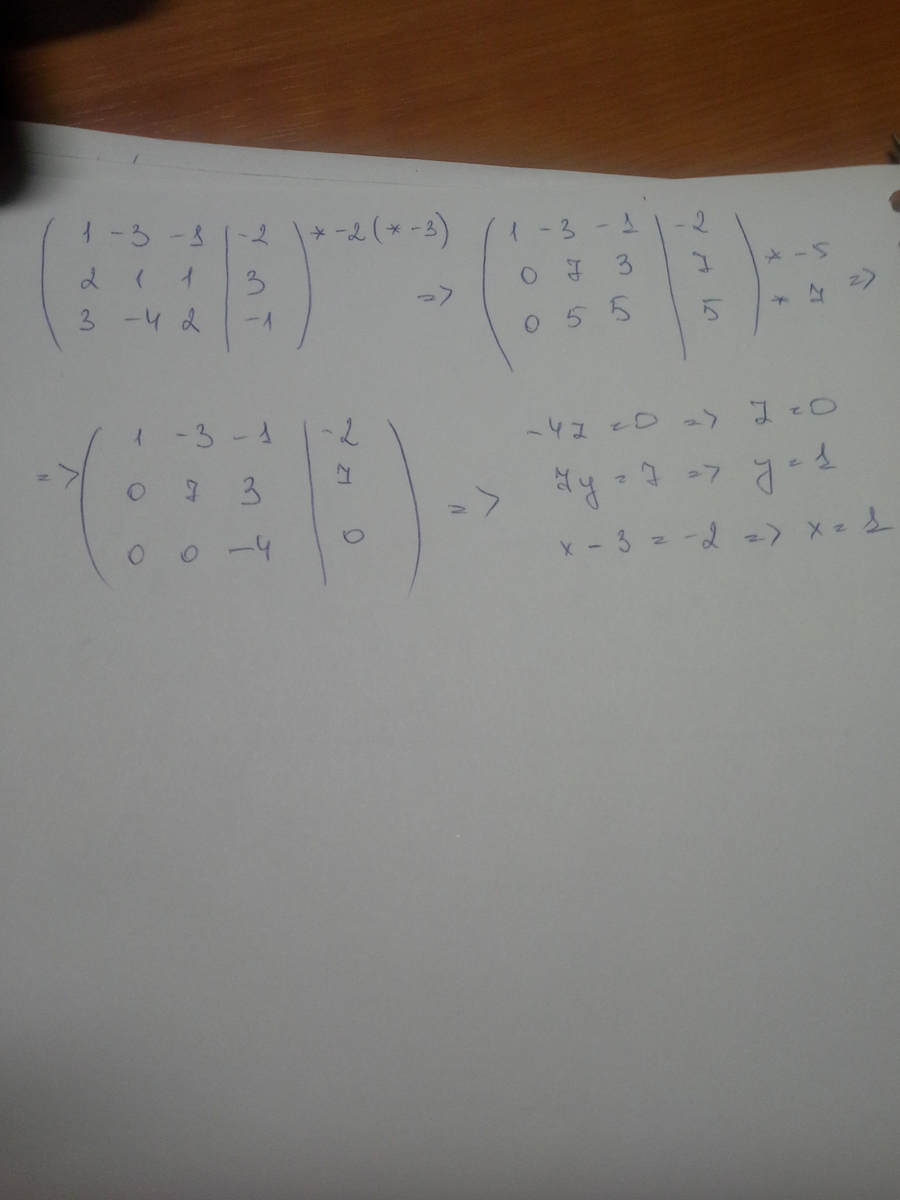 1 -3 -1 | -2 * -2 (* -3)
2 1 1 | 3
3 -4 2 | -1
=>
1 -3 -1 | -2
0 7 3 | 7 * -5
0 5 5 | 5 * 7
=>
=> 1 -3 -1 | -2
0 7 3 | 7
0 0 -4 | 0
=>
-4z = 0 => z = 0
7y = 7 => y = 1
x - 3 = -2 => x = 1